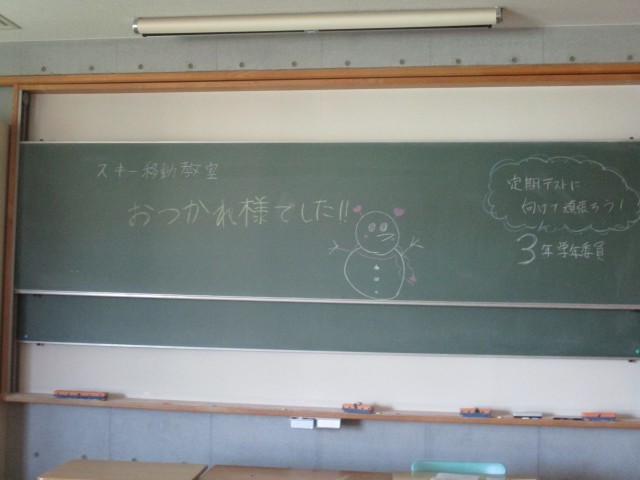 スキー移動教室
おつかれ様でした!!
定期テストに
向けて頑張ろう!
3年学年委員